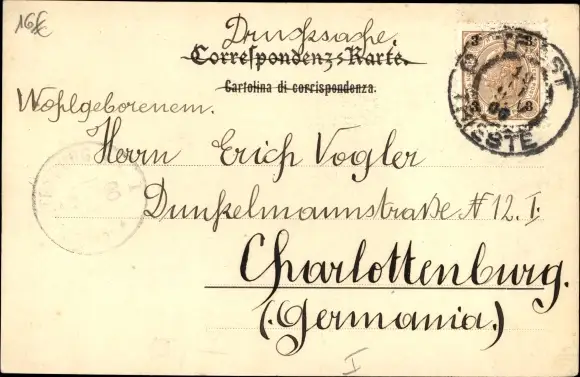 16€
Drucksache.
Correspondenz-Karte.
Cartolina di corrispondenza.
3 3
TRIESTE
Wohlgeborenem.
Herrn Erich Vogler
Dunkelmannstraße № 12. I.
Charlottenburg.
(Germania.)
I